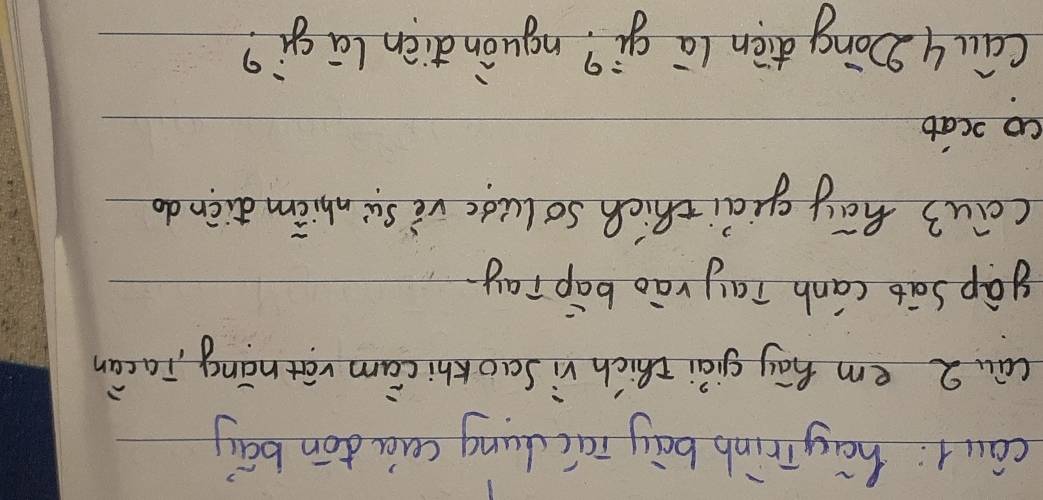 Câu 1: hãy Trình bày Tác dụng của đòn bẩy
câu 2 em hãy giải thích vì sao khi cầm vật nặng, Ta cần
gập sát cánh Tay vào bắp Tay
câu 3 hãy giải thích sơ lược về sự nhiễm điện do
cọ xát
Câu 4 Dòng điện là gì? nguồn điện là gì?